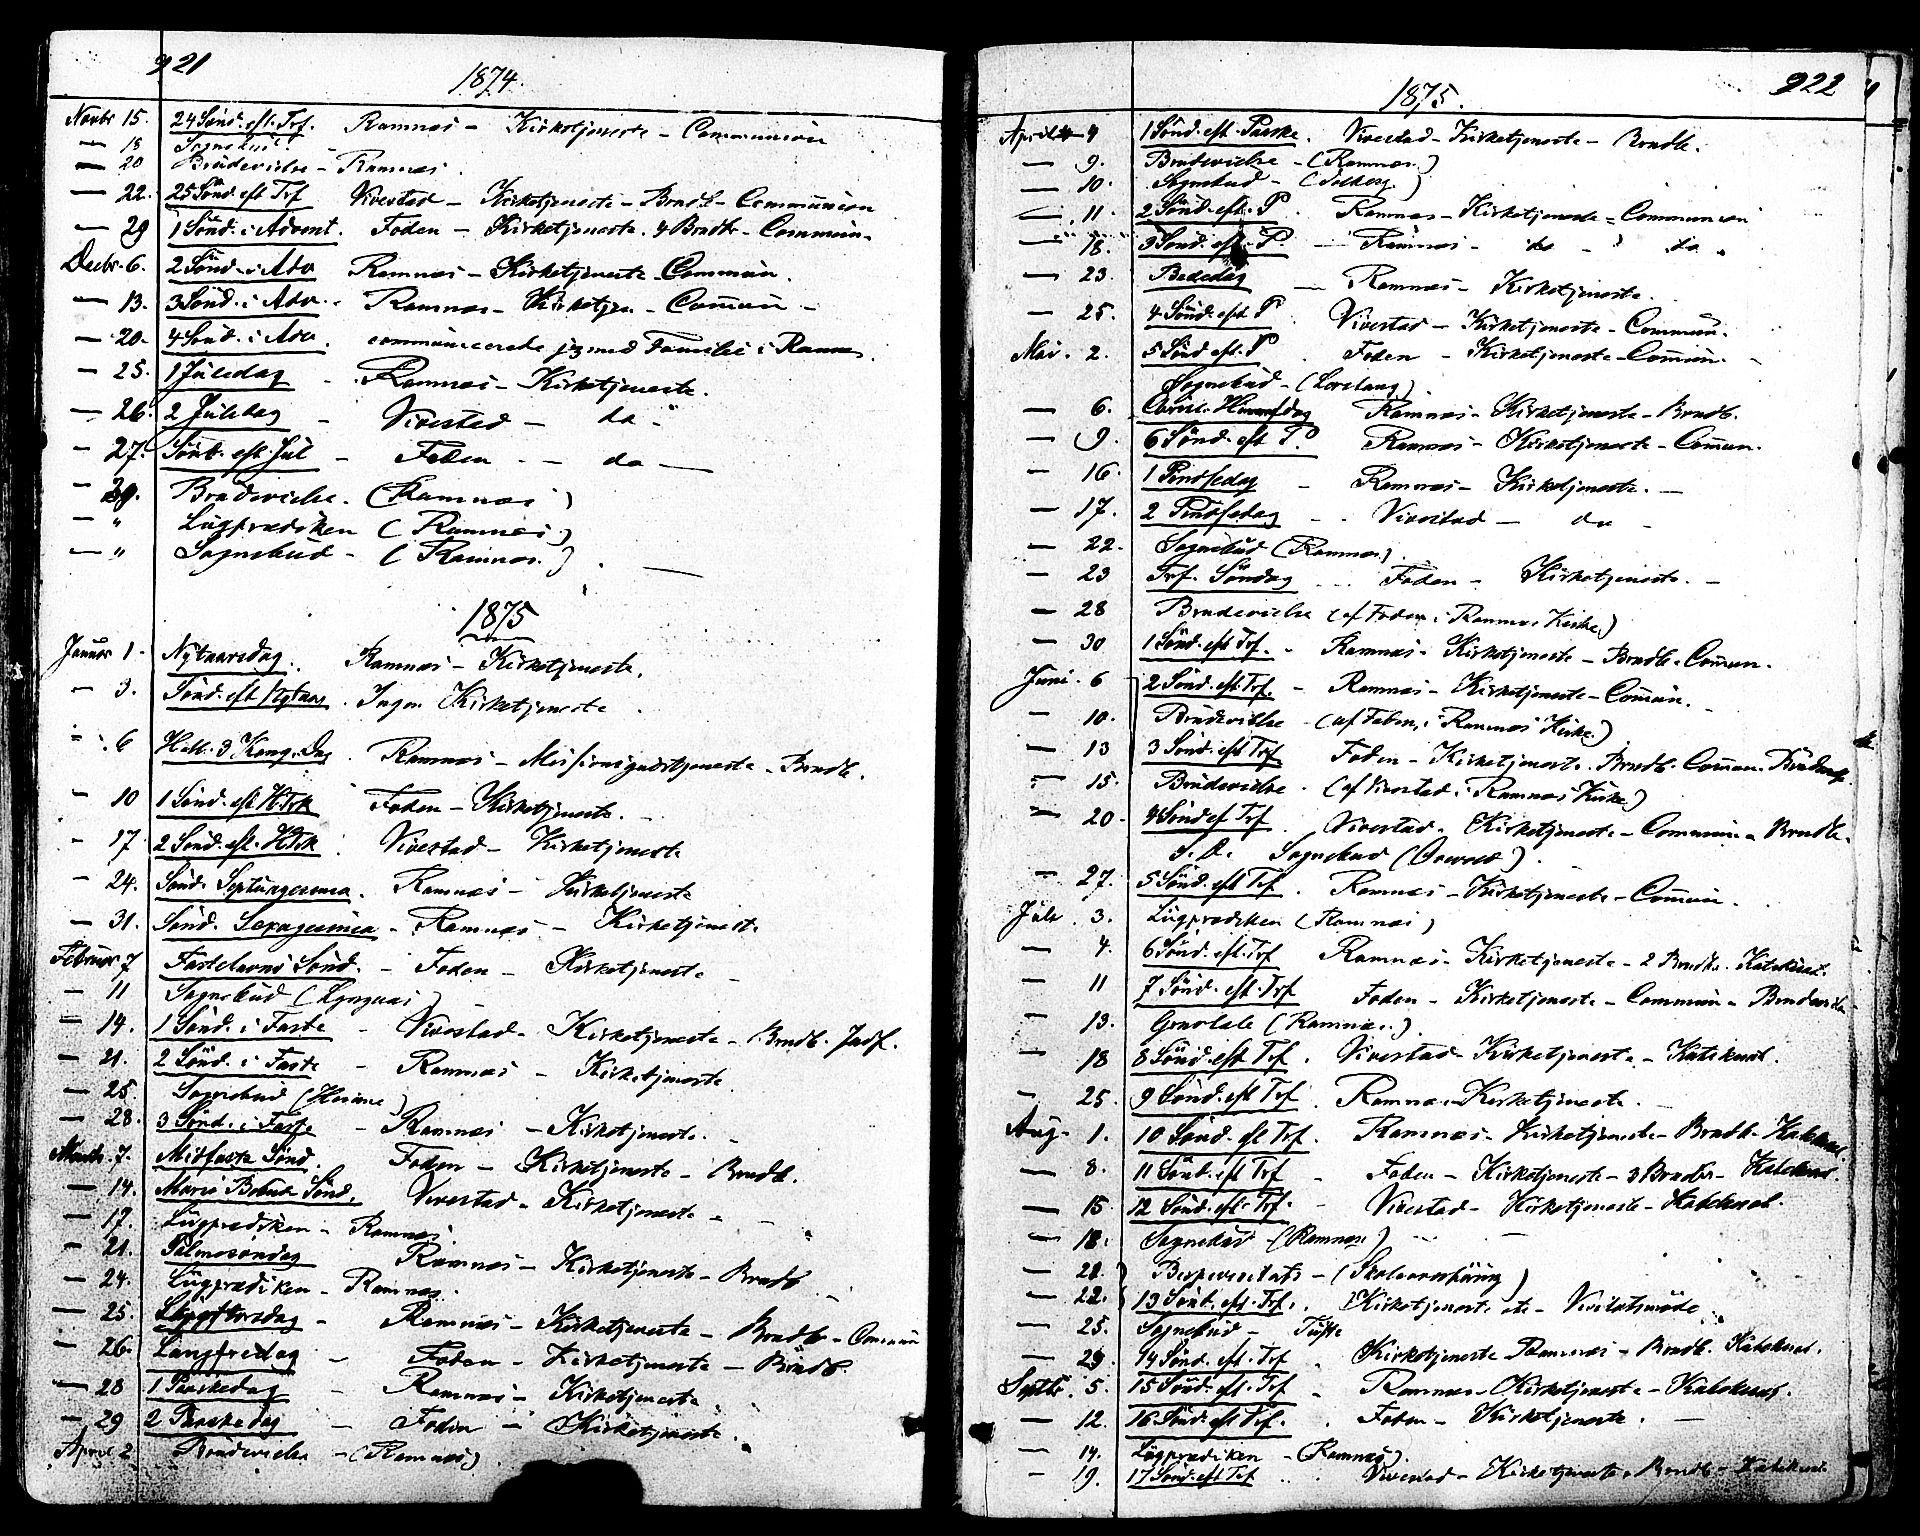 921
1874.
Novbr 15. 24 Sönd. eft. Tref. Ramnæs - Kirketjeneste - Communion
— 18 Sognebud
— 20 Brudevielse - Ramnæs.
— 22. 25 Sönd. eft Tref Vivestad - Kirketjeneste - Brudb - Communion
— 29 1 Sönd. i Advent. Foden - Kirketjeneste. 4 Brudb - Commun -
Decbr. 6. 2 Sönd. i Adv Ramnæs - Kirketjeneste - Commun.
— 13. 3 Sönd. i Adv. Ramnæs - Kirketjen - Commun -
— 20. 4 Sönd. i Adv. communicerede jeg med Familie i Ramnæs.
— 25. 1 Juledag - Ramnæs - Kirketjeneste.
— 26. 2 Juledag - Vivestad - do "
— 27. Sönd. eft. Jul - Foden - do —
— 29. Brudevielse. (Ramnæs)
— " Liigprædiken (Ramnæs)
— " Sognebud - (Ramnæs.)
1875
Januar 1. Nytaarsdag. Ramnæs - Kirketjeneste.
— 3. Sönd. eft Nytaar. Ingen Kirketjeneste.
" . 6 Hell. 3 Kong. Dag. Ramnæs - Missionsgudstjeneste - Brudb.
— 10 1 Sönd. eft H3K Foden - Kirketjeneste. -
— 17. 2 Sönd. eft. H3K. Vivestad - Kirketjeneste
— 24. Sönd. Septuagesima. Ramnæs - Kirketjeneste
— 31. Sönd. Sexagesima - Ramnæs - Kirketjeneste
Februar 7 Fastelavns Sönd. - Foden - Kirketjeneste -
— 11 Sognebud (Lyngaas)
— 14. 1 Sönd. i Faste - Vivestad - Kirketjeneste - Brudb. Jndf.
— 21. 2 Sönd. i Faste - Ramnæs - Kirketjeneste
— 25 Sognebud ()
— 28. 3 Sönd. i Faste - Ramnæs - Kirketjeneste. -
Marts. 7. Midfaste Sönd. Foden - Kirketjeneste - Brudb.
— 14. Mariæ Beb. Sönd. Vivestad - Kirketjeneste -
— 17. Liigprædiken - Ramnæs.
— 21. Palmesöndag Ramnæs - Kirketjeneste - Brudb
— 24. Liigprædiken - Ramnæs.
— 25. Skjærtorsdag - Ramnæs - Kirketjeneste - Brudb - Commun
— 26. Langfredag - Foden - Kirketjeneste - Brudb.
— 28 1 Paaskedag - Ramnæs - Kirketjeneste
— 29 2 Paaskedag - Foden - Kirketjeneste.
April 2 Brudevielse - (Ramnæs).
922
1875.
April 4 1 Sönd. eft. Paaske. Vivestad - Kirketjeneste - Brudb.
— 9. Brudevielse - (Ramnæs.)
— 10. Sognebud - (Solberg.)
— 11. 2 Sönd. eft. P. Ramnæs - Kirketjeneste - Communion
— 18. 3 Sönd. eft. P. - Ramnæs - do - do.
— 23. Bededag - Ramnæs - Kirketjeneste.
— 25. 4 Sönd. eft P. Vivestad - Kirketjeneste - Commun.
Mai. 2. 5 Sönd eft. P. Foden - Kirketjeneste - Commun. -
Sognebud - ().
— 6. Christi Himmelfdag Ramnæs - Kirketjeneste - Brudb.
— 9. 6 Sönd. eft P. Ramnæs - Kirketjeneste - Commun.
— 16. 1 Pindsedag - Ramnæs - Kirketjeneste. -
— 17. 2 Pindsedag - Vivestad - do -
— 22. Sognebud (Ramnæs).
— 23 Tref. Söndag Foden - Kirketjeneste. -
— 28 Brudevielse (af Foden i Ramnæs Kirke)
— 30 1 Sönd. eft Tref. - Ramnæs - Kirketjeneste - Brudb - Commun.
Juni. 6 2 Sönd. eft Tref. - Ramnæs - Kirketjeneste - Commun.
— 10. Brudevielse - (af Foden i Ramnæs Kirke)
— 13 3 Sönd. eft Tref Foden - Kirketjeneste. Brudb. Commun. Brudev.
— 15. Brudevielse. (af Vivestad i Ramnæs Kirke)
— 20. 4 Sönd ef Tref. Vivestad. Kirketjeneste - Commun - Brudb.
S. D. Sognebud ().
— 27. 5 Sönd. eft Tref. Ramnæs - Kirketjeneste - Commun.
Juli. 3. Liigprædiken (Ramnæs)
— 4. 6 Sönd. eft. Tref Ramnæs - Kirketjeneste - 2 Brudb. Katekisat.
— 11 7 Sönd. eft. Tref Foden - Kirketjeneste - Commun - Brudevielse
— 13. Gravtale (Ramnæs.)
— 18 8 Sönd. eft Tref. Vivestad - Kirketjeneste - Katekisat.
— 25. 9 Sönd. eft Tref. Ramnæs - Kirketjeneste. -
Aug. 1. 10 Sönd. eft Tref. Ramnæs - Kirketjeneste - Brudb. Katekisat.
— 8. 11 Sönd. eft Tref - Foden - Kirketjeneste - 3 Brudb - Katekisat.
— 15. 12 Sönd. eft. Tref. - Vivestad - Kirketjeneste - Katekisat.
— 18. Sognebud - (Ramnæs)
— 21. Bispevisitats - (Skoleoverhöring)
— 22. 13 Sönd. eft. Tref. Kirketjeneste etc - Visitatsmöde.
— 25. Sognebud - Tufte
— 29. 14 Sönd. eft. Tref. Kirketjeneste Ramnæs - Brudb. Katekisat.
Septbr. 5. 15 Sönd. eft. Tref - Ramnæs - Kirketjeneste - Katekisat.
— 12. 16 Sönd. eft Tref. Foden - Kirketjeneste. -
— 14. Liigprædiken - (Ramnæs).
— 19. 17 Sönd. eft Tref Vivestad - Kirketjeneste - Brudb - Katekisat.